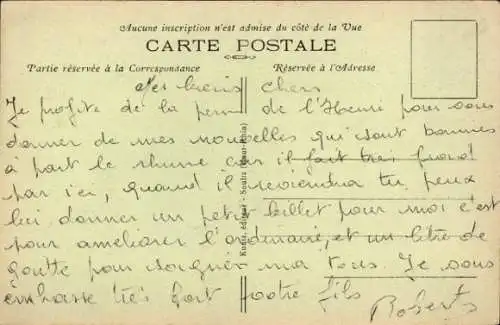 Aucune inscription n'est admise du côté de la Vue
CARTE POSTALE
Partie réservée à la Correspondance
Réservée à l'Adresse
Mes biens chers
Je profite de la perm de l'Henri pour vous
donner de mes nouvelles qui sont bonnes
à part le rhume car il fait très froid
par ici, quand il reviendra tu peux
lui donner un petit billet pour moi c'est
pour améliorer l'ordinaire, et un litre de
goutte pour soigner ma toux. Je vous
embrasse très fort votre fils
Robert
Kuntz, éditeur - Soultz (Haut-Rhin)